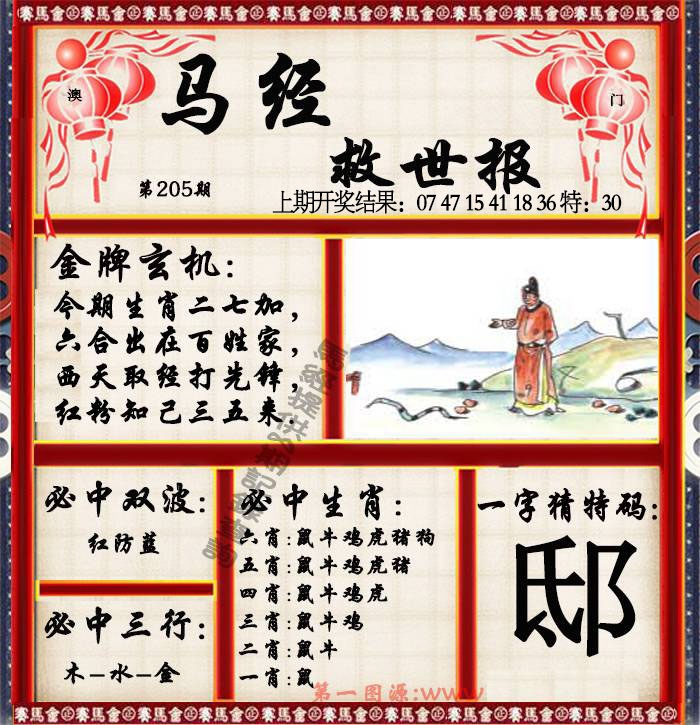 賽馬會 賽馬會 賽馬會 賽馬會 賽馬會 賽馬會 賽馬會
澳
门
马经
救世报
第205期
上期开奖结果：07 47 15 41 18 36 特：30
金牌玄机：
今期生肖二七加，
六合出在百姓家，
西天取经打先锋，
红粉知己三五来.
必中双波：
红防蓝
必中三行：
木-水-金
必中生肖：
六肖:鼠牛鸡虎猪狗
五肖:鼠牛鸡虎猪
四肖:鼠牛鸡虎
三肖:鼠牛鸡
二肖:鼠牛
一肖:鼠
一字猜特码：
邸
第一图源:www